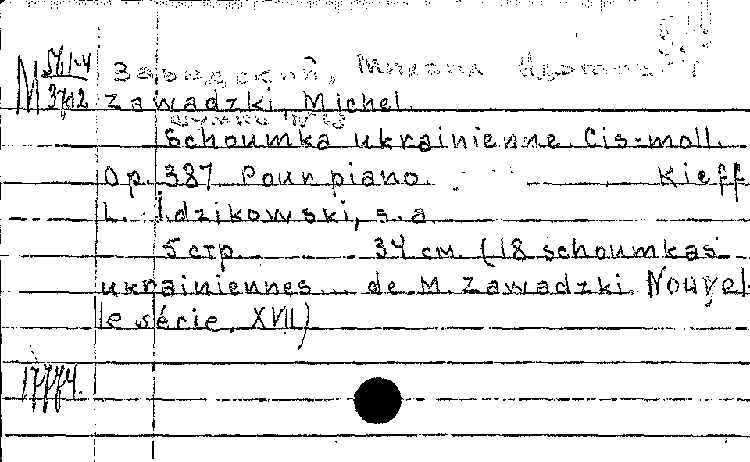 М 561-4
3702
Завадский, Михаил
Zawadzki, Michel.
Schoumka ukrainienne. Cis-moll.
Op. 387 Pour piano. Kieff
L. Idzikowski, s. a.
5 стр. 34 см. (18 schoumkas
ukrainiennes... de M. Zawadzki. Nouvel-
le série. XVII)